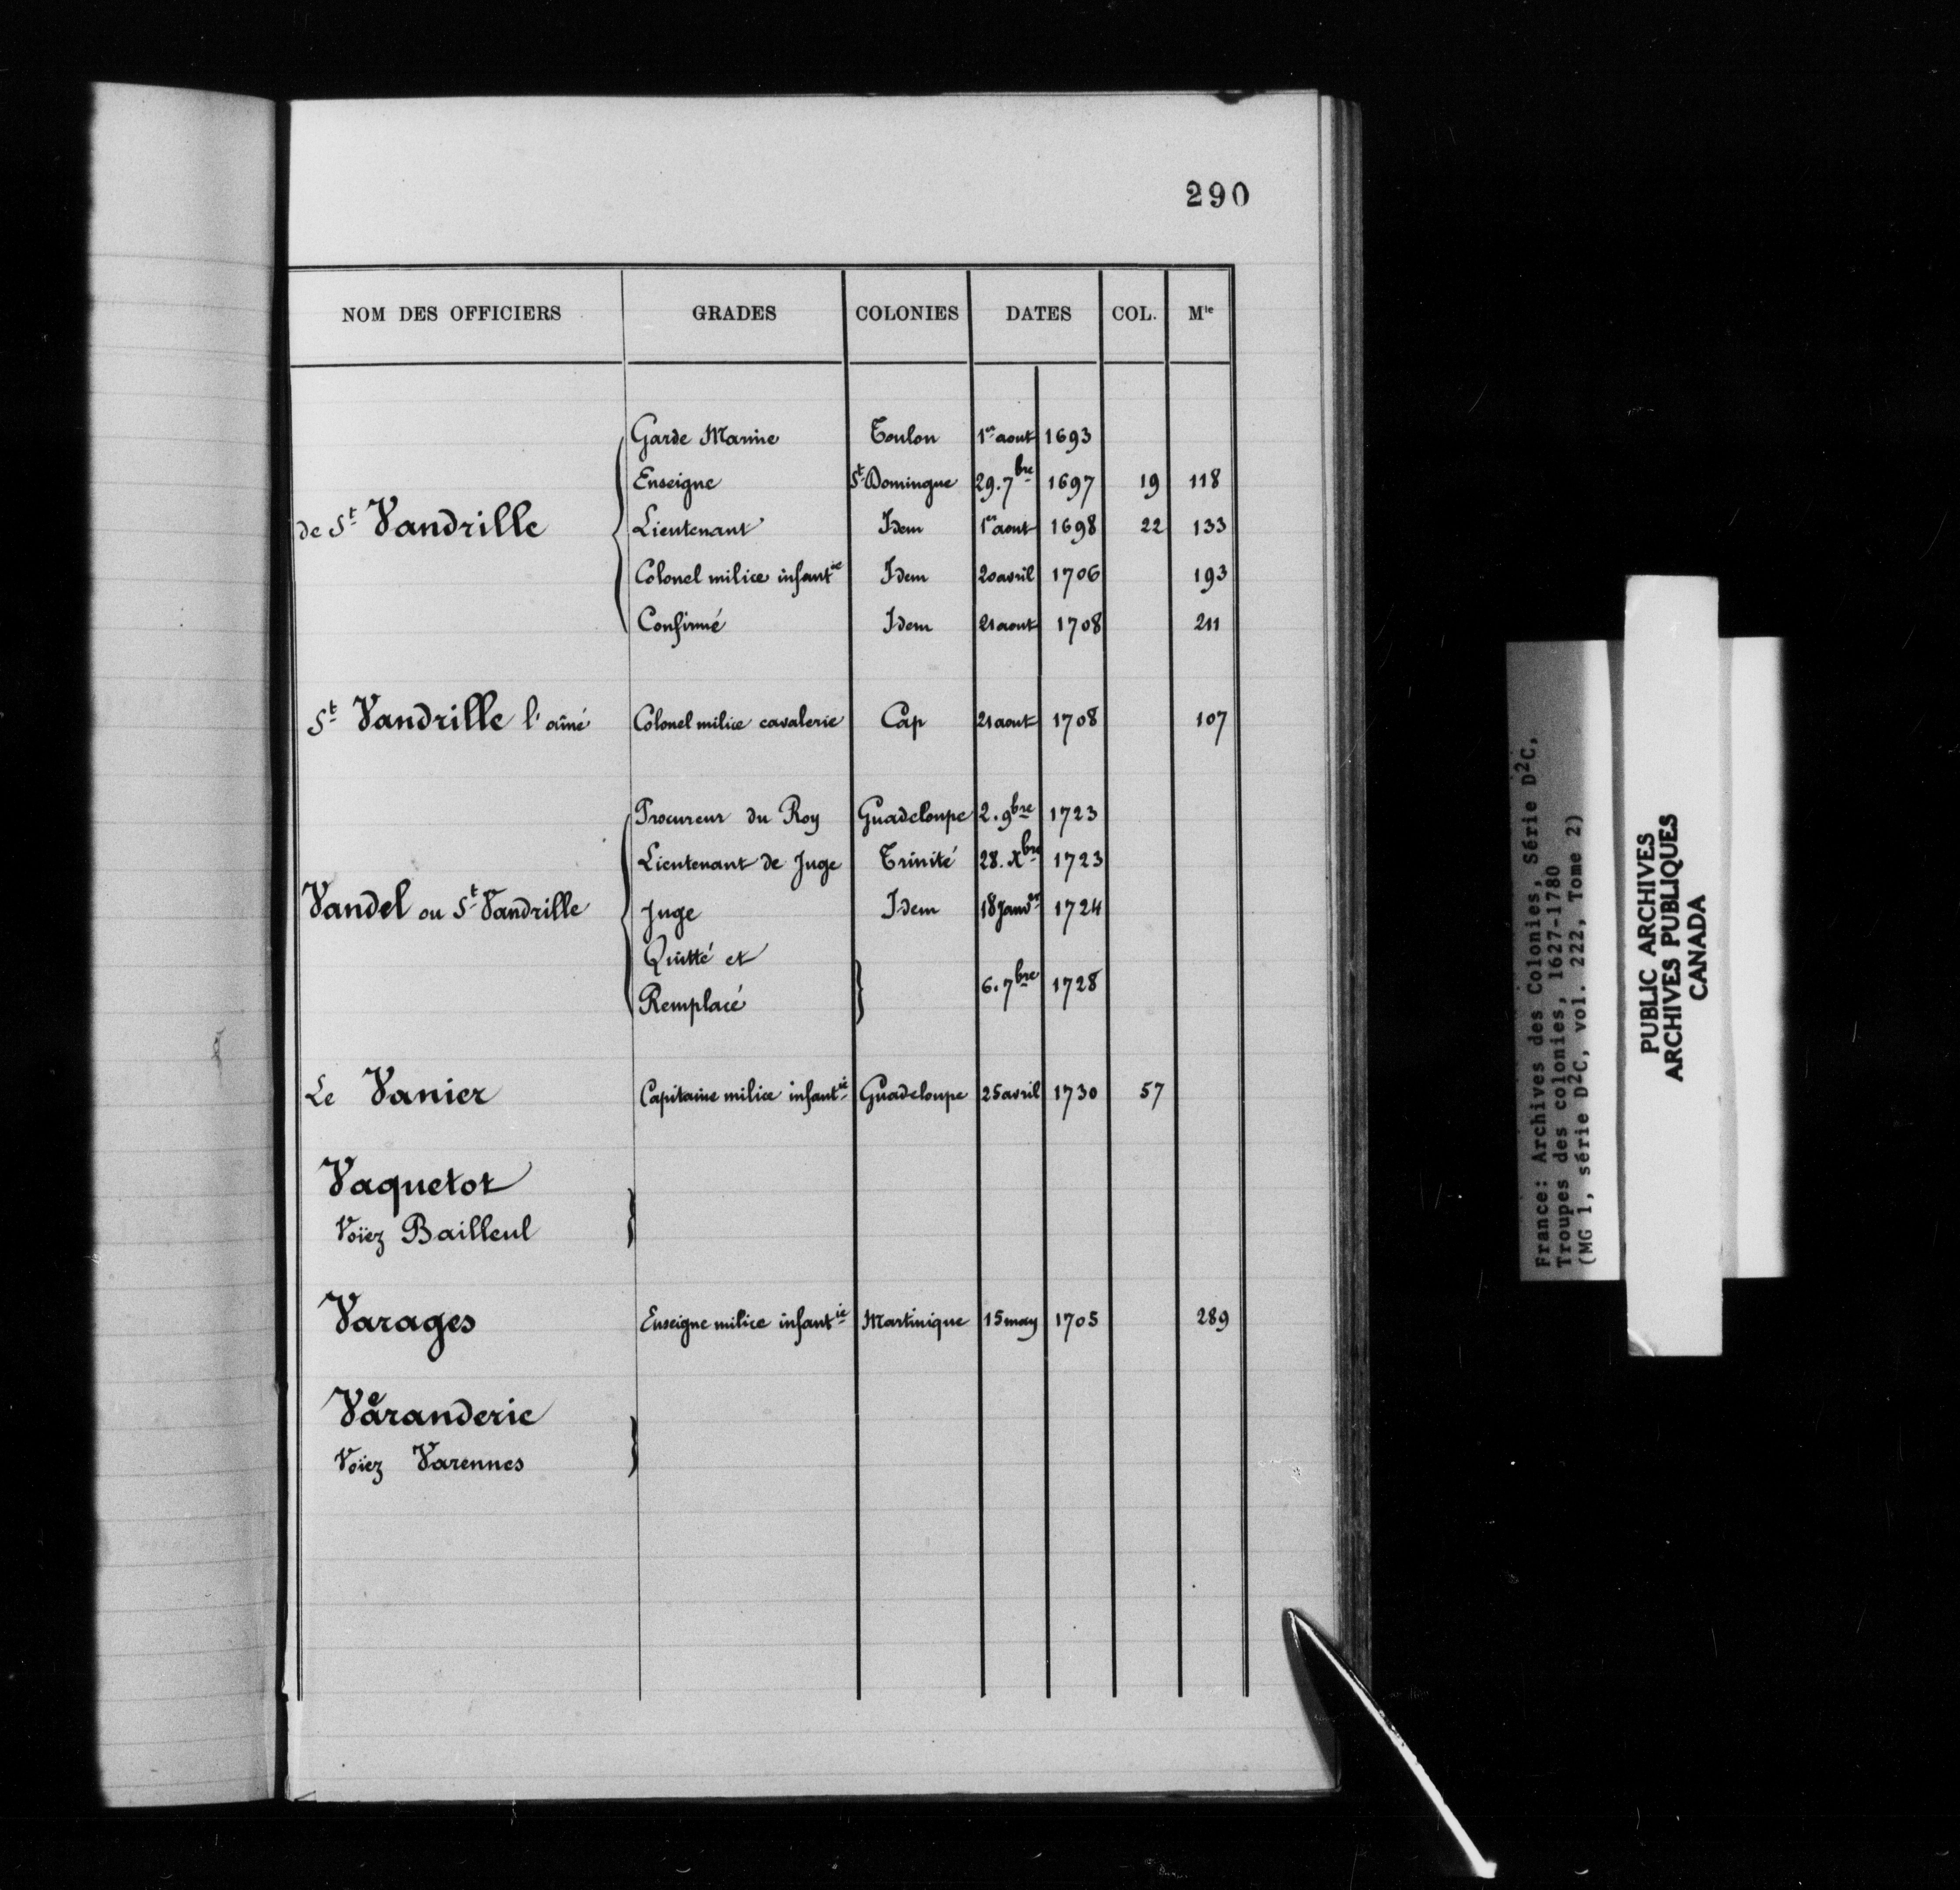 290
NOM DES OFFICIERS GRADES COLONIES DATES COL. Mle
Garde Marine Toulon 1er aout 1693
Enseigne St Domingue 29. 7bre 1697 19 118
de St Vandrille Lieutenant Idem 1er aout 1698 22 133
Colonel milice infantie Idem 20 avril 1706 193
Confirmé Idem 21 aout 1708 211
St Vandrille l'aîné Colonel milice cavalerie Cap 21 aout 1708 107
Procureur du Roy Guadeloupe 2. 9bre 1723
Lieutenant de Juge Trinité 28. Xbre 1723
Vandel ou St Vandrille Juge Idem 18 Janver 1724
Quitté et
Remplacé 6. 7bre 1728
Le Vanier Capitaine milice infantie Guadeloupe 25 avril 1730 57
Vaquetot
Voïez Bailleul
Varages Enseigne milice infantie Martinique 15 may 1705 289
Varanderie
Voïez Varennes
France: Archives des Colonies, Série D2C,
Troupes des colonies, 1627-1780
(MG 1, série D2C, vol. 222, Tome 2)
PUBLIC ARCHIVES
ARCHIVES PUBLIQUES
CANADA